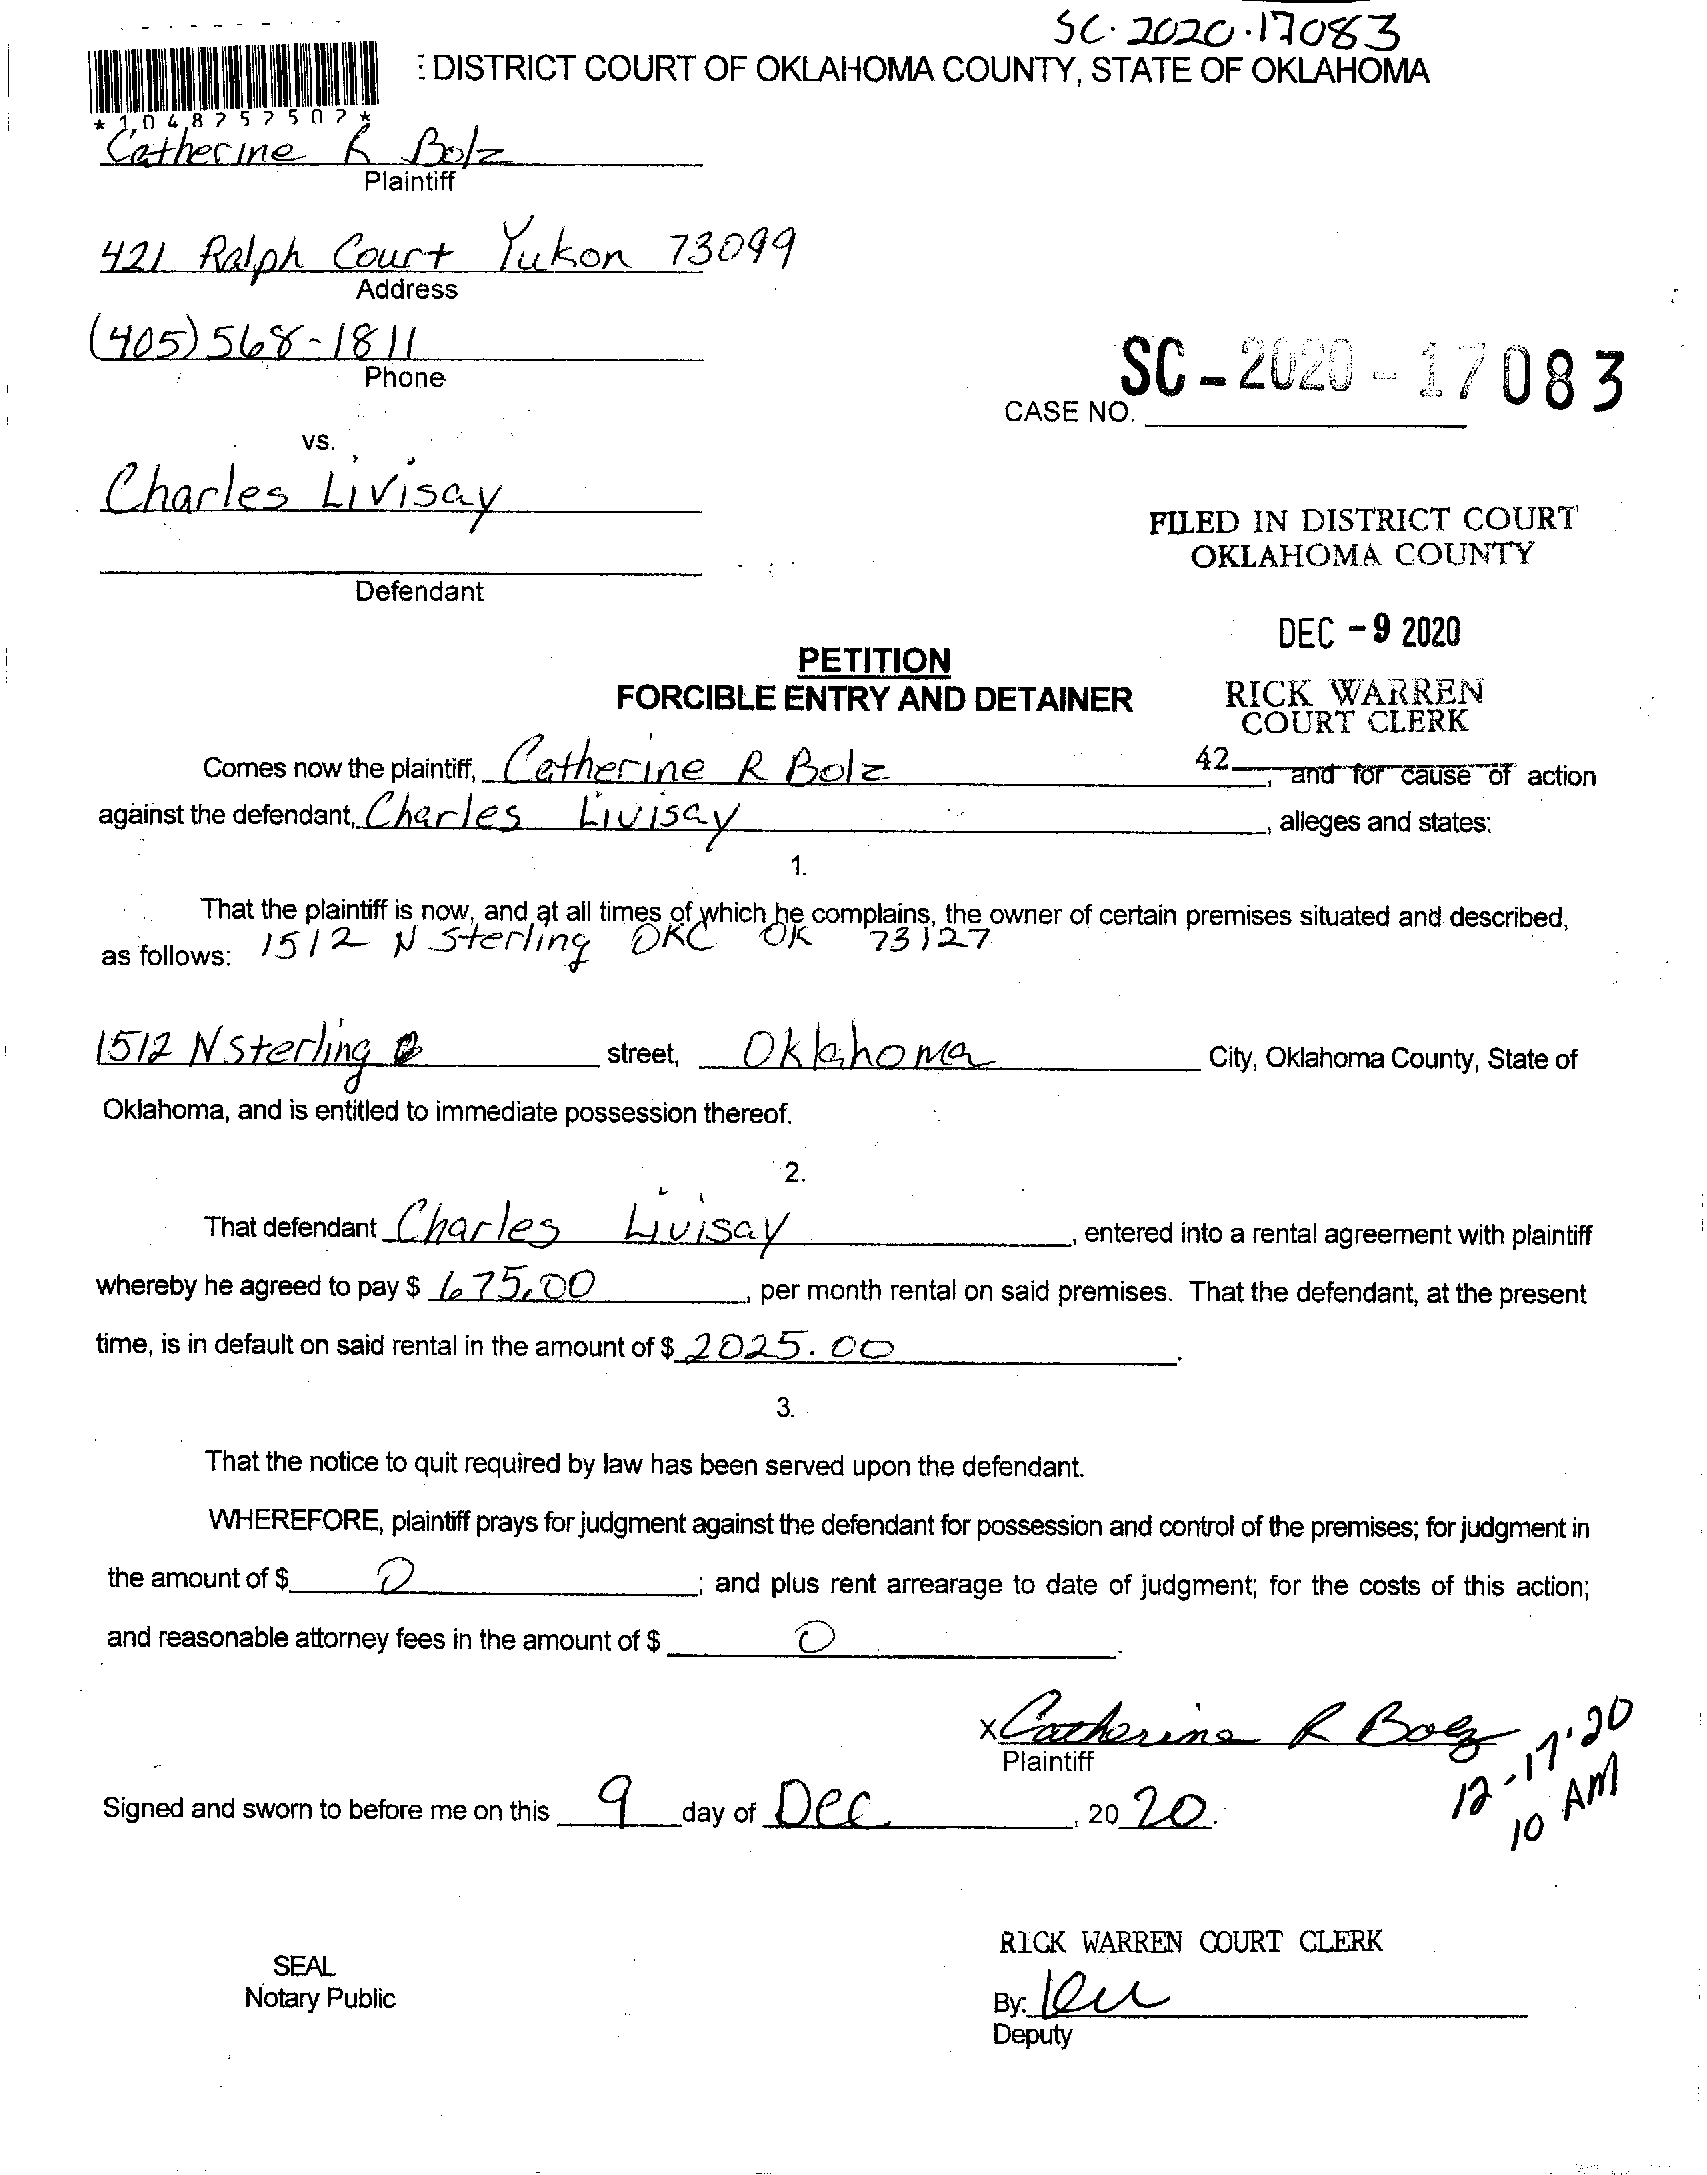 SC-2020-17083
: DISTRICT COURT OF OKLAHOMA COUNTY, STATE OF OKLAHOMA
* 1 0 4 8 7 5 7 5 0 7 *
Catherine R Bolz
Plaintiff
421 Ralph Court Yukon 73099
Address
(405) 568-1811
Phone
SC-2020-17083
CASE NO.
vs.
Charles Livisay
Defendant
FILED IN DISTRICT COURT
OKLAHOMA COUNTY
DEC -9 2020
RICK WARREN
COURT CLERK
42
PETITION
FORCIBLE ENTRY AND DETAINER
Comes now the plaintiff, Catherine R Bolz, and for cause of action
against the defendant, Charles Livisay, alleges and states:
1.
That the plaintiff is now, and at all times of which he complains, the owner of certain premises situated and described,
as follows: 1512 N Sterling OKC OK 73127
1512 N Sterling street, Oklahoma City, Oklahoma County, State of
Oklahoma, and is entitled to immediate possession thereof.
2.
That defendant Charles Livisay, entered into a rental agreement with plaintiff
whereby he agreed to pay $ 675.00, per month rental on said premises. That the defendant, at the present
time, is in default on said rental in the amount of $ 2025.00.
3.
That the notice to quit required by law has been served upon the defendant.
WHEREFORE, plaintiff prays for judgment against the defendant for possession and control of the premises; for judgment in
the amount of $ 0; and plus rent arrearage to date of judgment; for the costs of this action;
and reasonable attorney fees in the amount of $ 0.
x Catherine R Bolz
Plaintiff
12-17-20
10 AM
Signed and sworn to before me on this 9 day of Dec, 20 20.
RICK WARREN COURT CLERK
SEAL
Notary Public
By:
Deputy